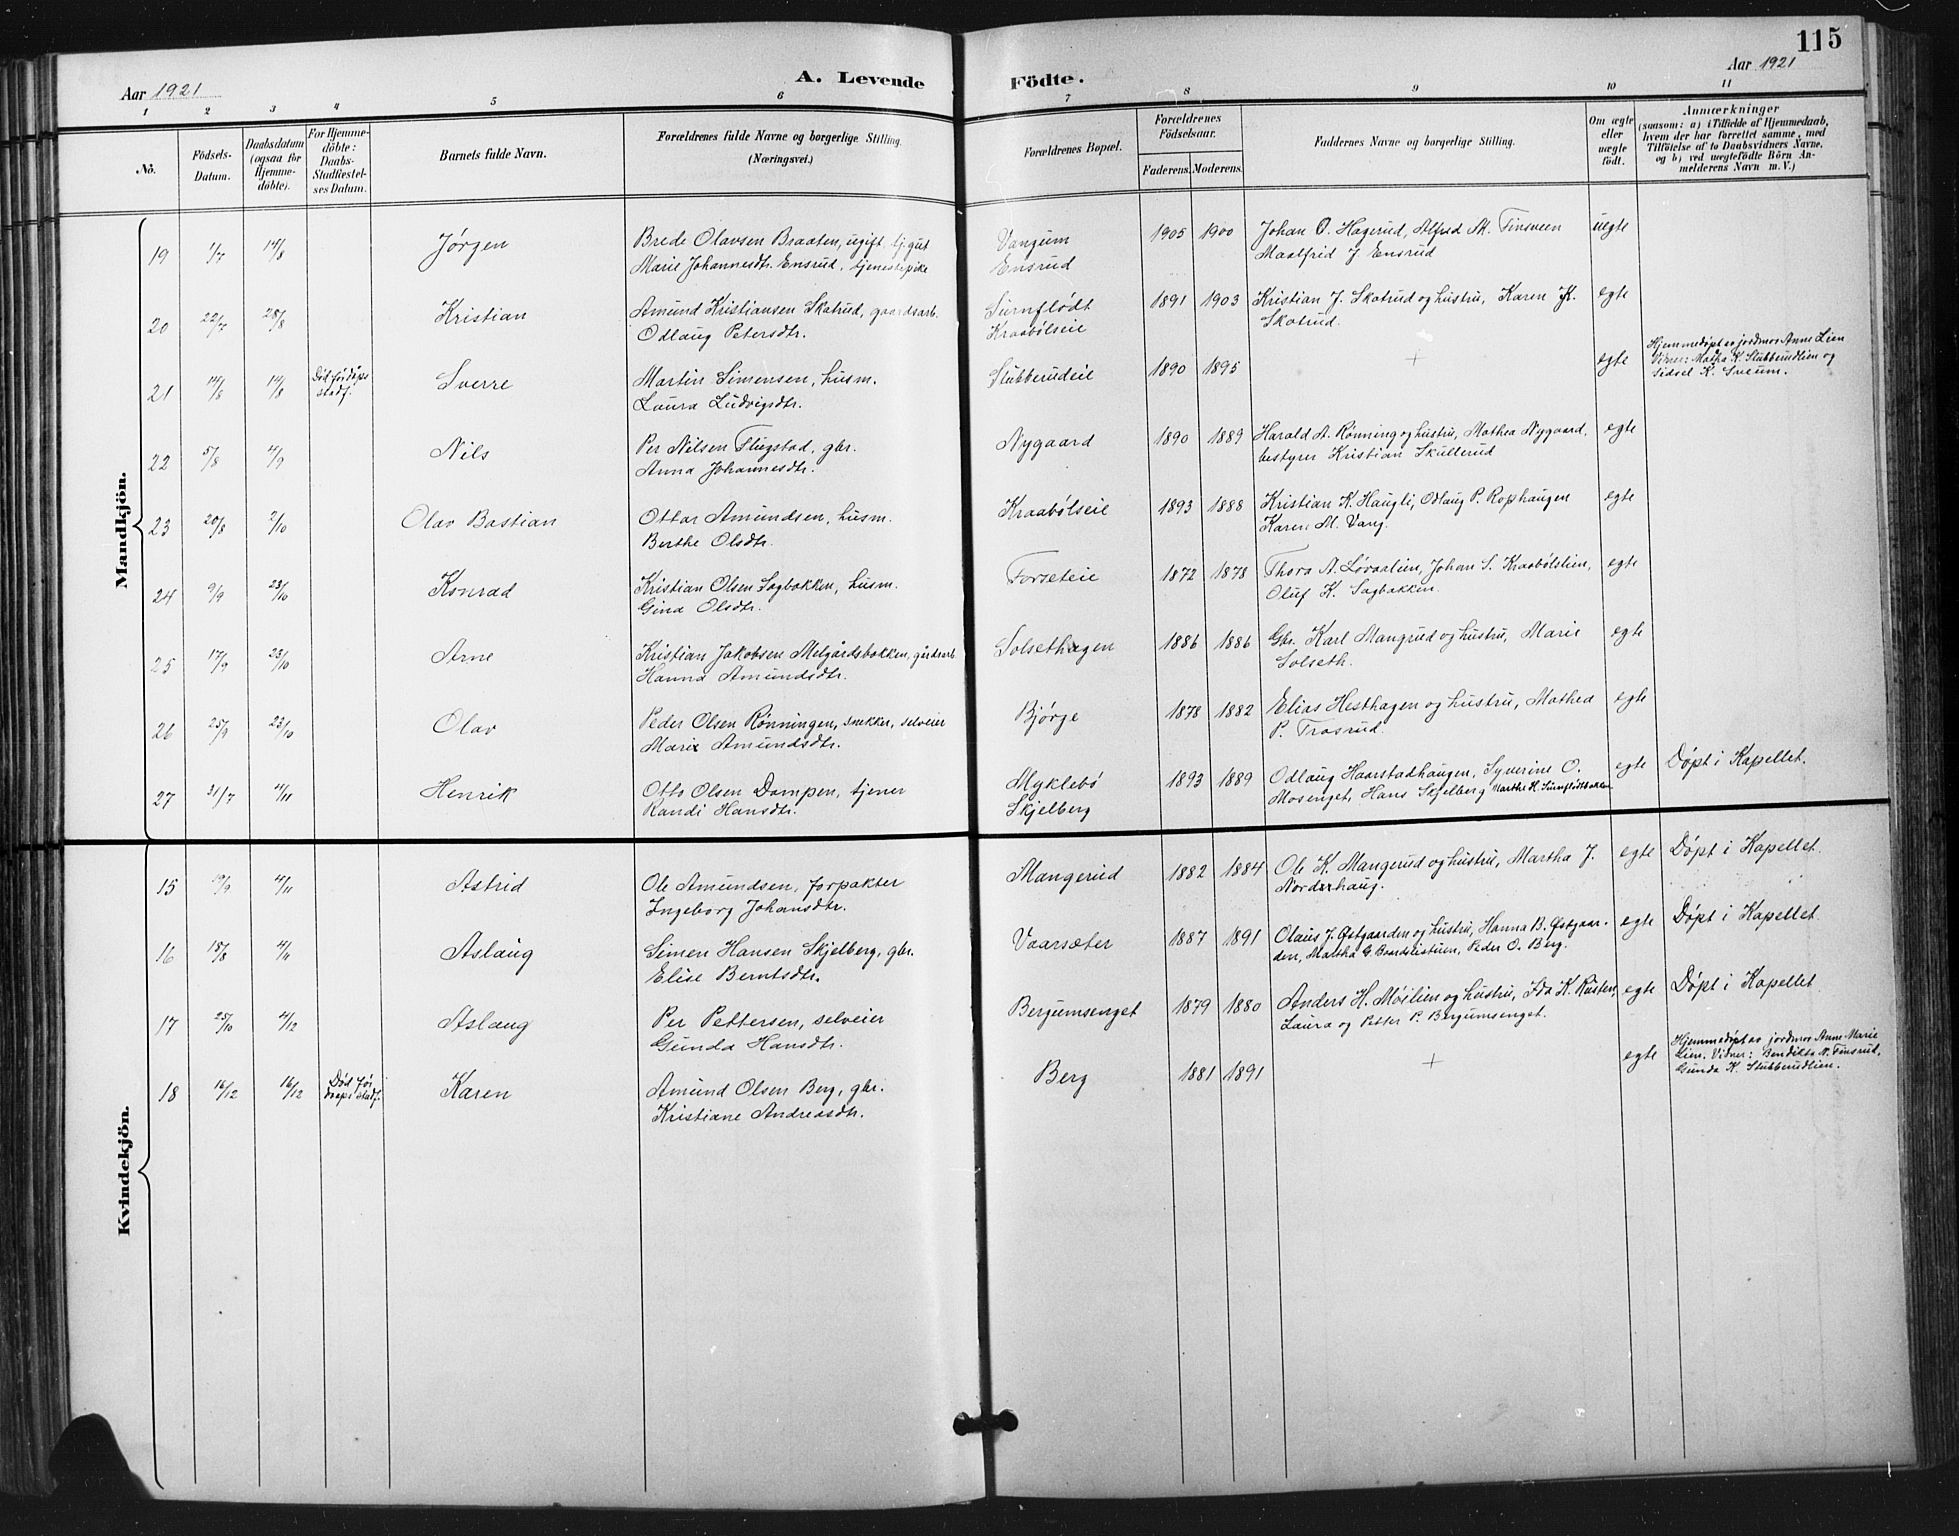 115
Aar 1921
A. Levende
Födte.
Aar 1921
1 2 3 4 5 6 7 8 9 10 11
No.
Födsels-Datum.
Daabsdatum (ogsaa for Hjemme-döbte).
For Hjemme-döbte: Daabs-Stadfæstel-ses Datum.
Barnets fulde Navn.
Forældrenes fulde Navne og borgerlige Stilling. (Næringsvei.)
Forældrenes Bopæl.
Forældrenes Födselsaar.
Faderens. Moderens.
Faddernes Navne og borgerlige Stilling.
Om ægte eller uægte födt.
Anmærkninger
(saasom: a) i Tilfælde af Hjemmedaab, hvem der har forrettet samme, med Tilföielse af to Daabsvidners Navne, og b) ved uegtefödte Börn An-melderens Navn m. V.)
Mandkjön.
19 1/7 14/8 Jørgen Brede Olavsen Braaten, ugift, tj.gut Vangum 1905 1900 Johan O. Hagerud, Alfred M. Finsveen uegte
Marie Johannesdtr. Ensrud, tjenestepike Ensrud Maalfrid J Ensrud
20 22/7 28/8 Kristian Amund Kristiansen Skotrud, gaardsarb. Surnflødt 1891 1903 Kristian J. Skotrud og hustru, Karen K. egte
Odlaug Petersdtr. Kraabølseie Skotrud.
21 14/8 14/8 Død før dåps stadf. Sverre Martin Simensen, husm. Stubberudeie 1890 1895 + egte Hjemmedøpt av jordmor Anne Lien
Laura Ludvigsdtr. Vidner: Mathea K. Stubberudlien og
Sidsel K. Sveum.
22 5/8 4/9 Nils Per Nilsen Flugstad, gbr. Nygaard 1890 1889 Harald A. Rønning og hustru, Mathea Nygaard, egte
Anna Johannesdtr. bestyrer Kristian Skullerud
23 20/8 2/10 Olav Bastian Ottar Amundsen, husm. Kraabølseie 1893 1888 Kristian K. Haugli, Odlaug P. Rophaugen egte
Berthe Olsdtr. Karen M. Vang.
24 9/9 23/10 Konrad Kristian Olsen Sagbakken, husm. Forseteie 1872 1878 Thora A. Løvaalien, Johan S. Kraabølslien, egte
Gina Olsdtr. Oluf K. Sagbakken.
25 17/9 23/10 Arne Kristian Jakobsen Melgårdsbakken, gårdsarb. Solsethagen 1886 1886 Gbr. Karl Mangrud og hustru, Marie egte
Hanna Amundsdtr. Solseth.
26 25/9 23/10 Olav Peder Olsen Rønningen, snekker, selveier Bjørge 1878 1882 Elias Hesthagen og hustru, Mathea egte
Marie Amundsdtr. P. Trosrud.
27 31/7 4/11 Henrik Otto Olsen Dampen, tjener Myklebø 1893 1889 Odlaug Haarstadhaugen, Syverine O. egte Døpt i Kapellet.
Randi Hansdtr. Skjelberg Mosenget, Hans Skjelberg Marthe H. Surnflødtbakken
Kvindekjön.
15 19/9 4/11 Astrid Ole Amundsen, forpakter Mangerud 1882 1884 Ole K. Mangerud og hustru, Martha J. egte Døpt i Kapellet.
Ingeborg Johansdtr. Norderhaug.
16 18/8 4/11 Aslaug Simen Hansen Skjelberg, gbr. Vaarsæter 1887 1891 Olaus J. Østgaarden og hustru, Hanna B. Østgaar- egte Døpt i Kapellet.
Elise Berntsdtr. den, Martha G. Baardslistuen, Peder O. Berg.
17 25/10 4/12 Aslaug Per Pettersen, selveier Bergumsenget 1879 1880 Anders H. Møilien og hustru, Ida K. Rusten, egte Døpt i Kapellet
Gunda Hansdtr. Laura og Petter P. Bergumsenget.
18 16/12 16/12 Død før daaps stadf. Karen Amund Olsen Berg, gbr. Berg 1881 1891 + egte Hjemmedøpt av jordmor Anne Marie
Kristiane Andreasdtr. Lien. Vidner: Bendikte N. Finsrud,
Gunda K. Stubberudlien.